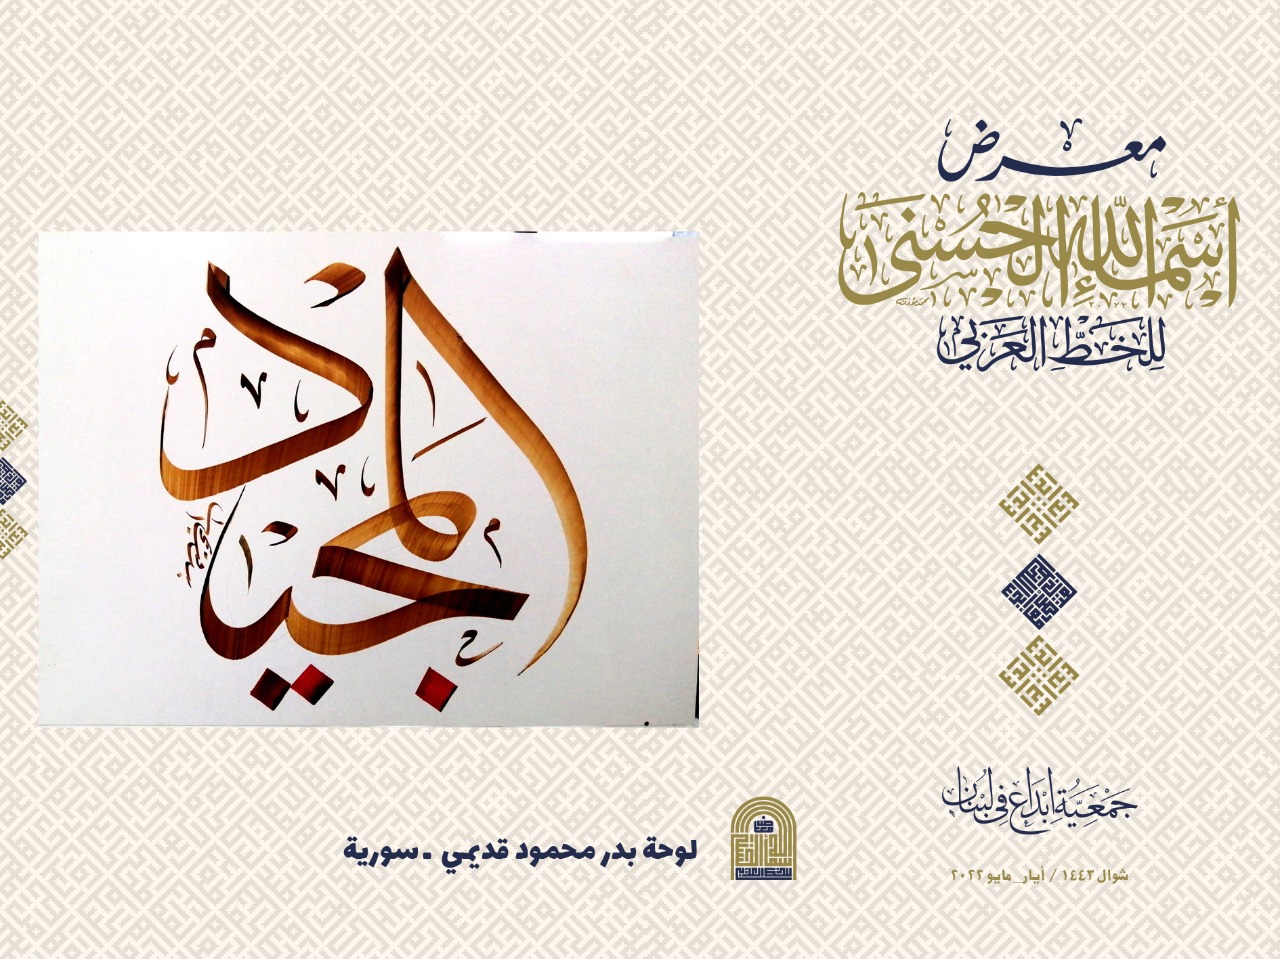 معرض
أسماء الله الحسنى
للخط العربي
المجيد
جمعية إبداع في لبنان
شوال ١٤٤٣ / أيار_مايو ٢٠٢٢
لوحة بدر محمود قديمي - سورية